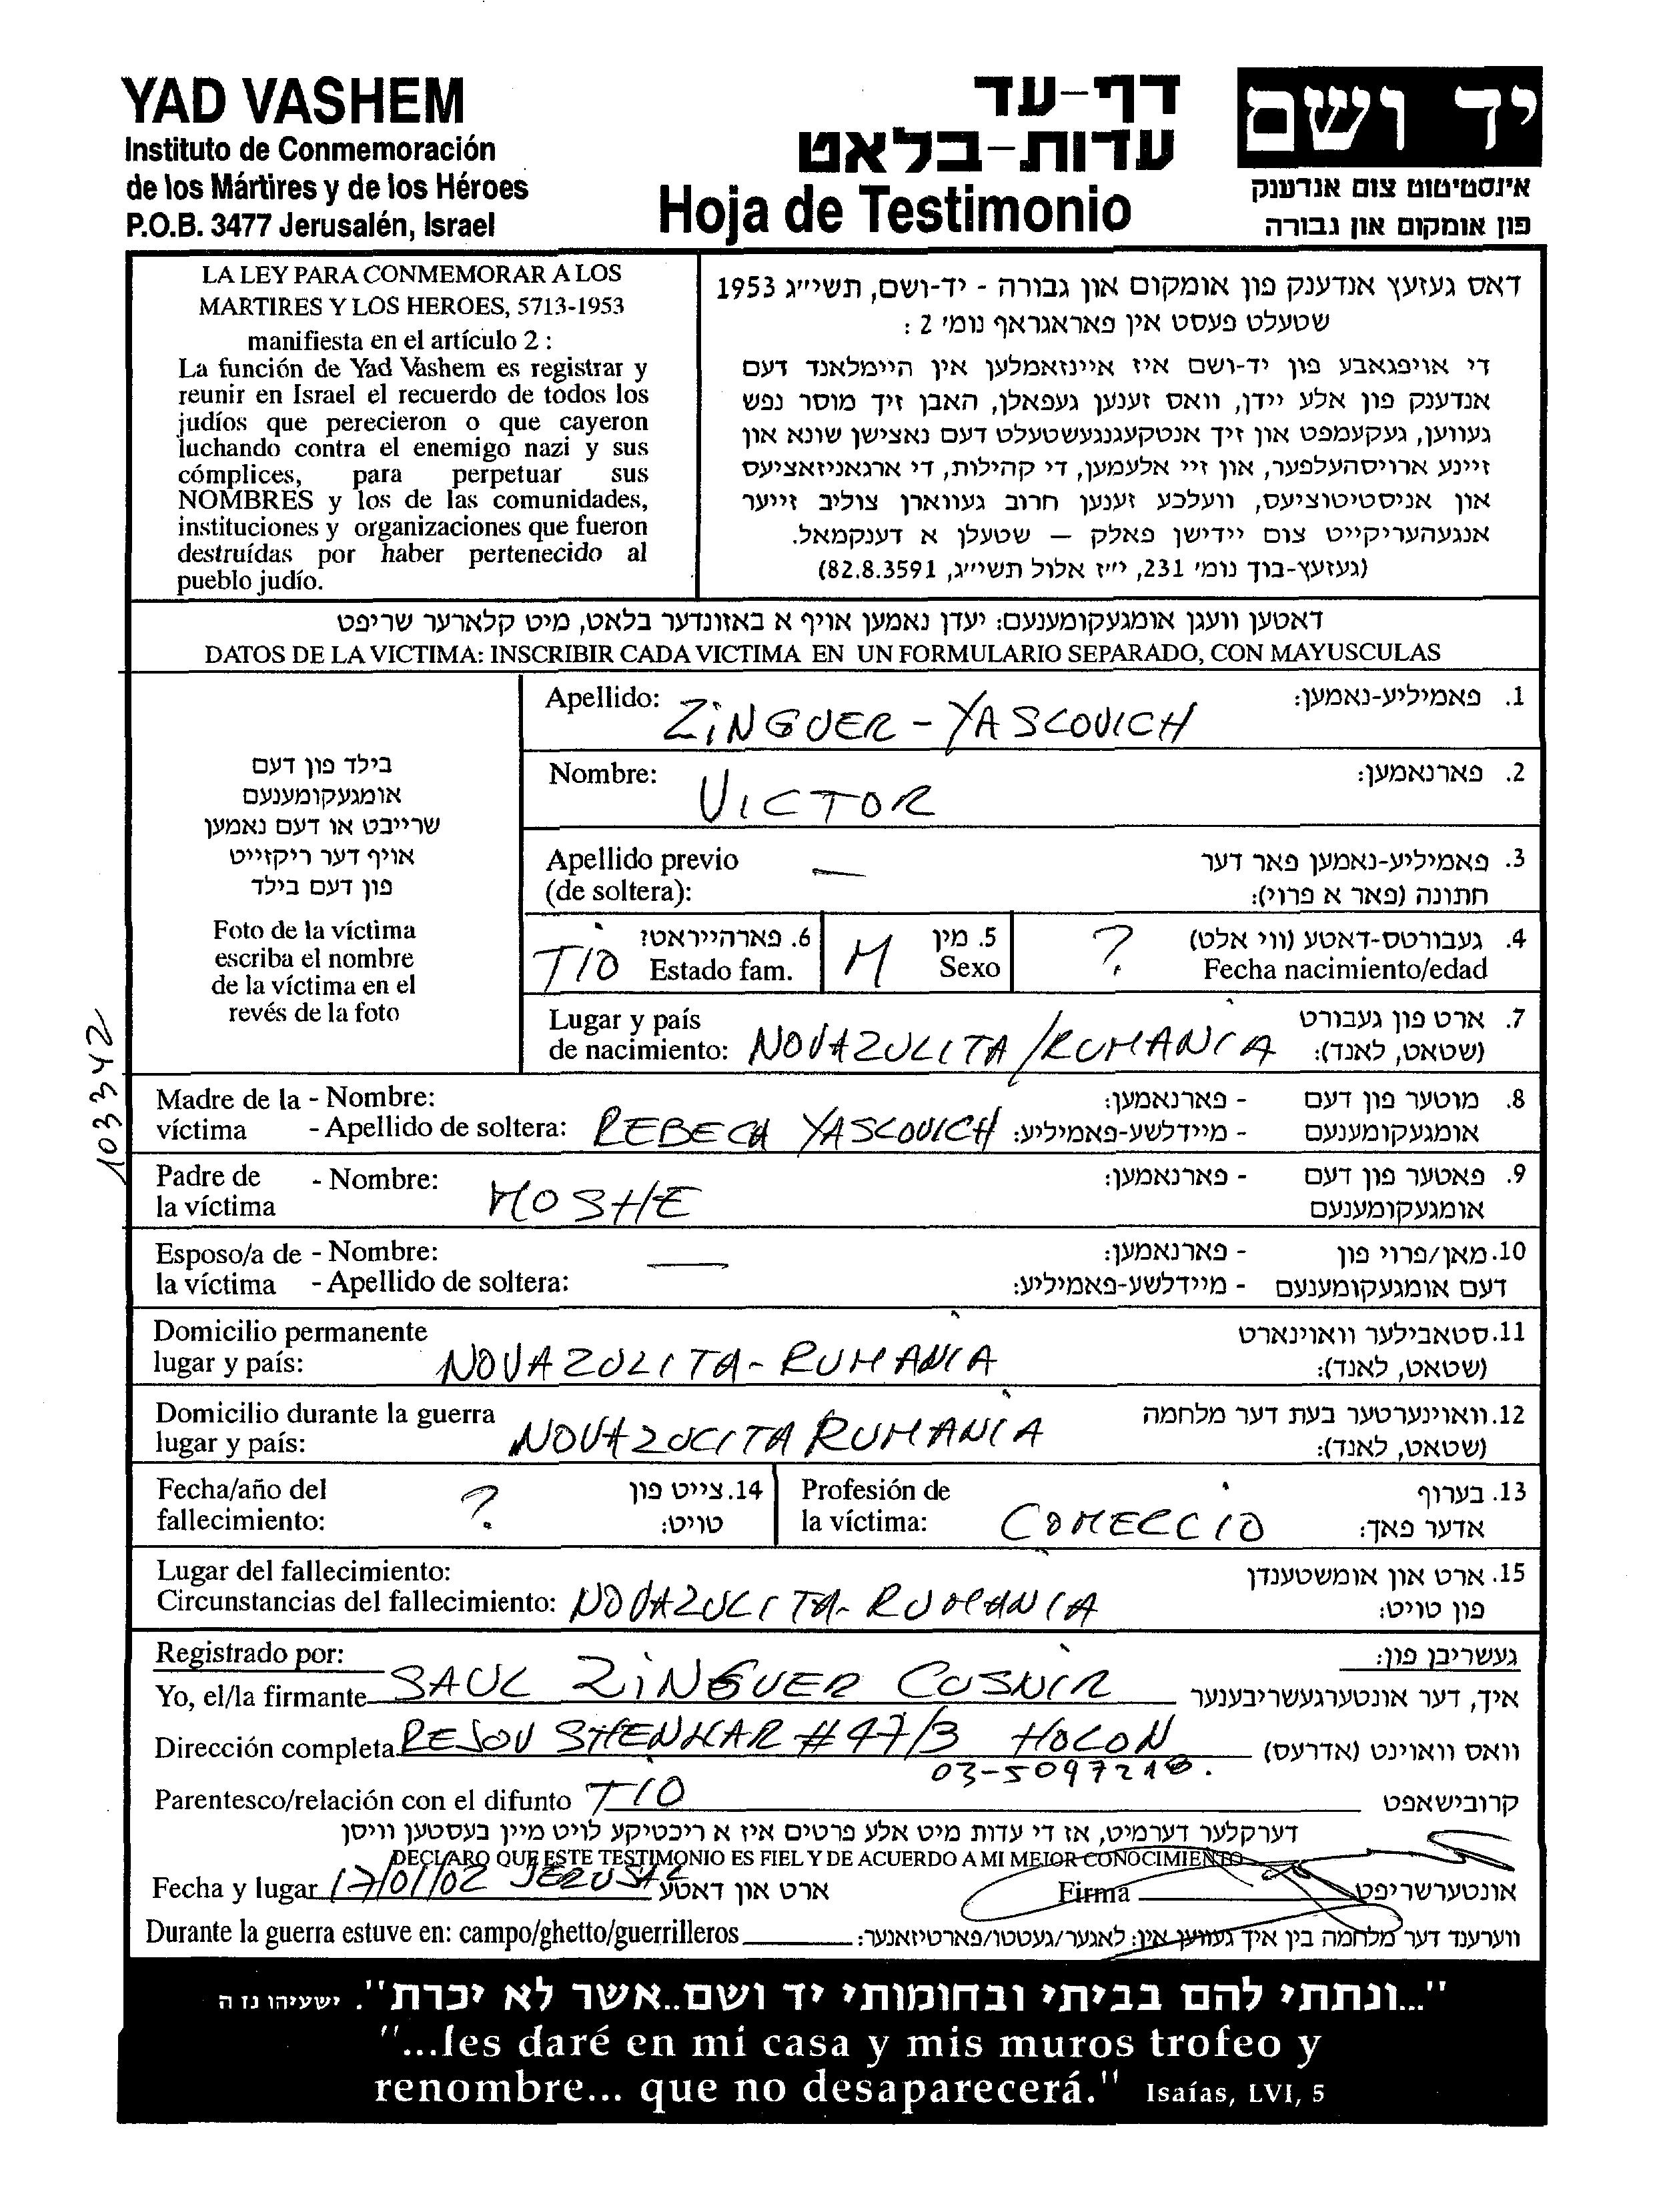 YAD VASHEM
Instituto de Conmemoración
de los Mártires y de los Héroes
P.O.B. 3477 Jerusalén, Israel
דף-עד
עדות-בלאט
Hoja de Testimonio
יד ושם
אינסטיטוט צום אנדענק
פון אומקום און גבורה
LA LEY PARA CONMEMORAR A LOS
MARTIRES Y LOS HEROES, 5713-1953
manifiesta en el artículo 2 :
La función de Yad Vashem es registrar y
reunir en Israel el recuerdo de todos los
judíos que perecieron o que cayeron
luchando contra el enemigo nazi y sus
cómplices, para perpetuar sus
NOMBRES y los de las comunidades,
instituciones y organizaciones que fueron
destruídas por haber pertenecido al
pueblo judío.
דאס געזעץ אנדענק פון אומקום און גבורה - יד-ושם, תשי״ג 1953
שטעלט פעסט אין פאראגראף נומ׳ 2 :
די אויפגאבע פון יד-ושם איז איינזאמלען אין היימלאנד דעם
אנדענק פון אלע יידן, וואס זענען געפאלן, האבן זיך מוסר נפש
געווען, געקעמפט און זיך אנטקעגנגעשטעלט דעם נאצישן שונא און
זיינע ארויסהעלפער, און זיי אלעמען, די קהילות, די ארגאניזאציעס
און אניסטיטוציעס, וועלכע זענען חרוב געווארן צוליב זייער
אנגעהעריקייט צום יידישן פאלק – שטעלן א דענקמאל.
(געזעץ-בוך נומ׳ 231, י״ז אלול תשי״ג, 82.8.3591)
דאטען וועגן אומגעקומענעם: יעדן נאמען אויף א באזונדער בלאט, מיט קלארער שריפט
DATOS DE LA VICTIMA: INSCRIBIR CADA VICTIMA EN UN FORMULARIO SEPARADO, CON MAYUSCULAS
בילד פון דעם
אומגעקומענעם
שרייבט או דעם נאמען
אויף דער ריקזייט
פון דעם בילד
Foto de la víctima
escriba el nombre
de la víctima en el
revés de la foto
103342
Apellido: ZINGUER - YASCOVICH 1. פאמיליע-נאמען:
Nombre: VICTOR 2. פארנאמען:
Apellido previo — 3. פאמיליע-נאמען פאר דער
(de soltera): חתונה (פאר א פרוי):
TIO 6. פארהייראט? M 5. מין ? 4. געבורטס-דאטע (ווי אלט)
Estado fam. Sexo Fecha nacimiento/edad
Lugar y país 7. ארט פון געבורט
de nacimiento: NOVAZULITA/RUMANIA (שטאט, לאנד):
Madre de la - Nombre: - פארנאמען: 8. מוטער פון דעם
víctima - Apellido de soltera: REBECA YASCOVICH - מיידלשע-פאמיליע: אומגעקומענעם
Padre de - Nombre: MOSHE - פארנאמען: 9. פאטער פון דעם
la víctima אומגעקומענעם
Esposo/a de - Nombre: — - פארנאמען: 10. מאן/פרוי פון
la víctima - Apellido de soltera: - מיידלשע-פאמיליע: דעם אומגעקומענעם
Domicilio permanente 11. סטאבילער וואוינארט
lugar y país: NOVAZULITA - RUMANIA (שטאט, לאנד):
Domicilio durante la guerra 12. וואוינערטער בעת דער מלחמה
lugar y país: NOVAZULITA RUMANIA (שטאט, לאנד):
Fecha/año del ? 14. צייט פון Profesión de 13. בערוף
fallecimiento: טויט: la víctima: COMERCIO אדער פאך:
Lugar del fallecimiento: 15. ארט און אומשטענדן
Circunstancias del fallecimiento: NOVAZULITA - RUMANIA פון טויט:
Registrado por: געשריבן פון:
Yo, el/la firmante SAUL ZINGUER CUSNIR איך, דער אונטערגעשריבענער
Dirección completa REJOV SHENKAR # 47/3 HOLON וואס וואוינט (אדרעס)
03-5097218.
Parentesco/relación con el difunto TIO קרובישאפט
דערקלער דערמיט, אז די עדות מיט אלע פרטים איז א ריכטיקע לויט מיין בעסטען וויסן
DECLARO QUE ESTE TESTIMONIO ES FIEL Y DE ACUERDO A MI MEJOR CONOCIMIENTO
Fecha y lugar 17/01/02 JERUSAL ארט און דאטע Firma אונטערשריפט
Durante la guerra estuve en: campo/ghetto/guerrilleros ווערענד דער מלחמה בין איך געווען אין: לאגער/געטטו/פארטיזאנער:
"...ונתתי להם בביתי ובחומותי יד ושם..אשר לא יכרת". ישעיהו נז ה
"...les daré en mi casa y mis muros trofeo y
renombre... que no desaparecerá." Isaías, LVI, 5